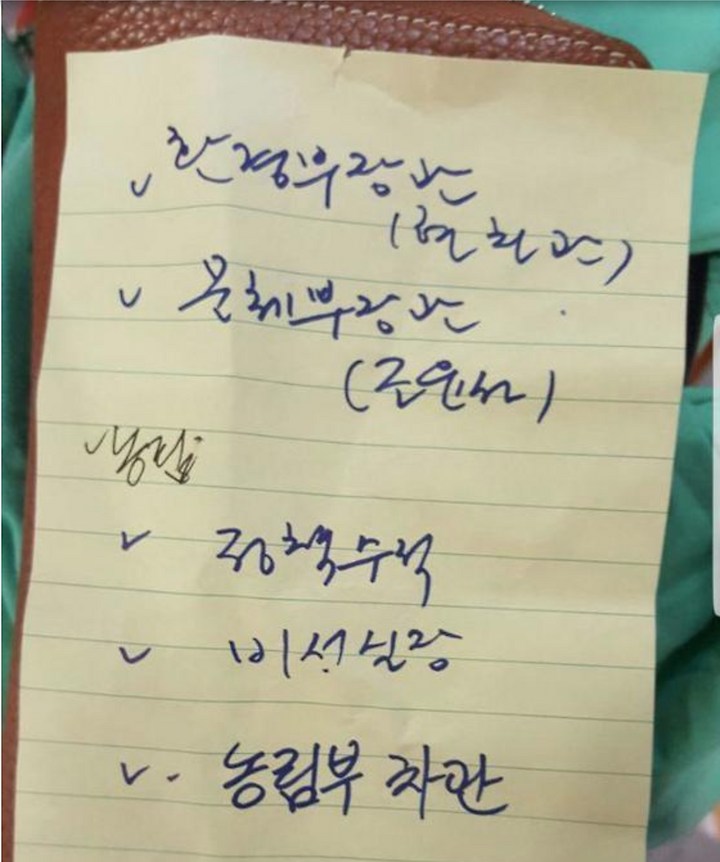 ✓ 환경부장관
(현 차관)
✓ 문체부장관
(조윤선)
✓ 정책수석
✓ 비서실장
✓ - 농림부 차관